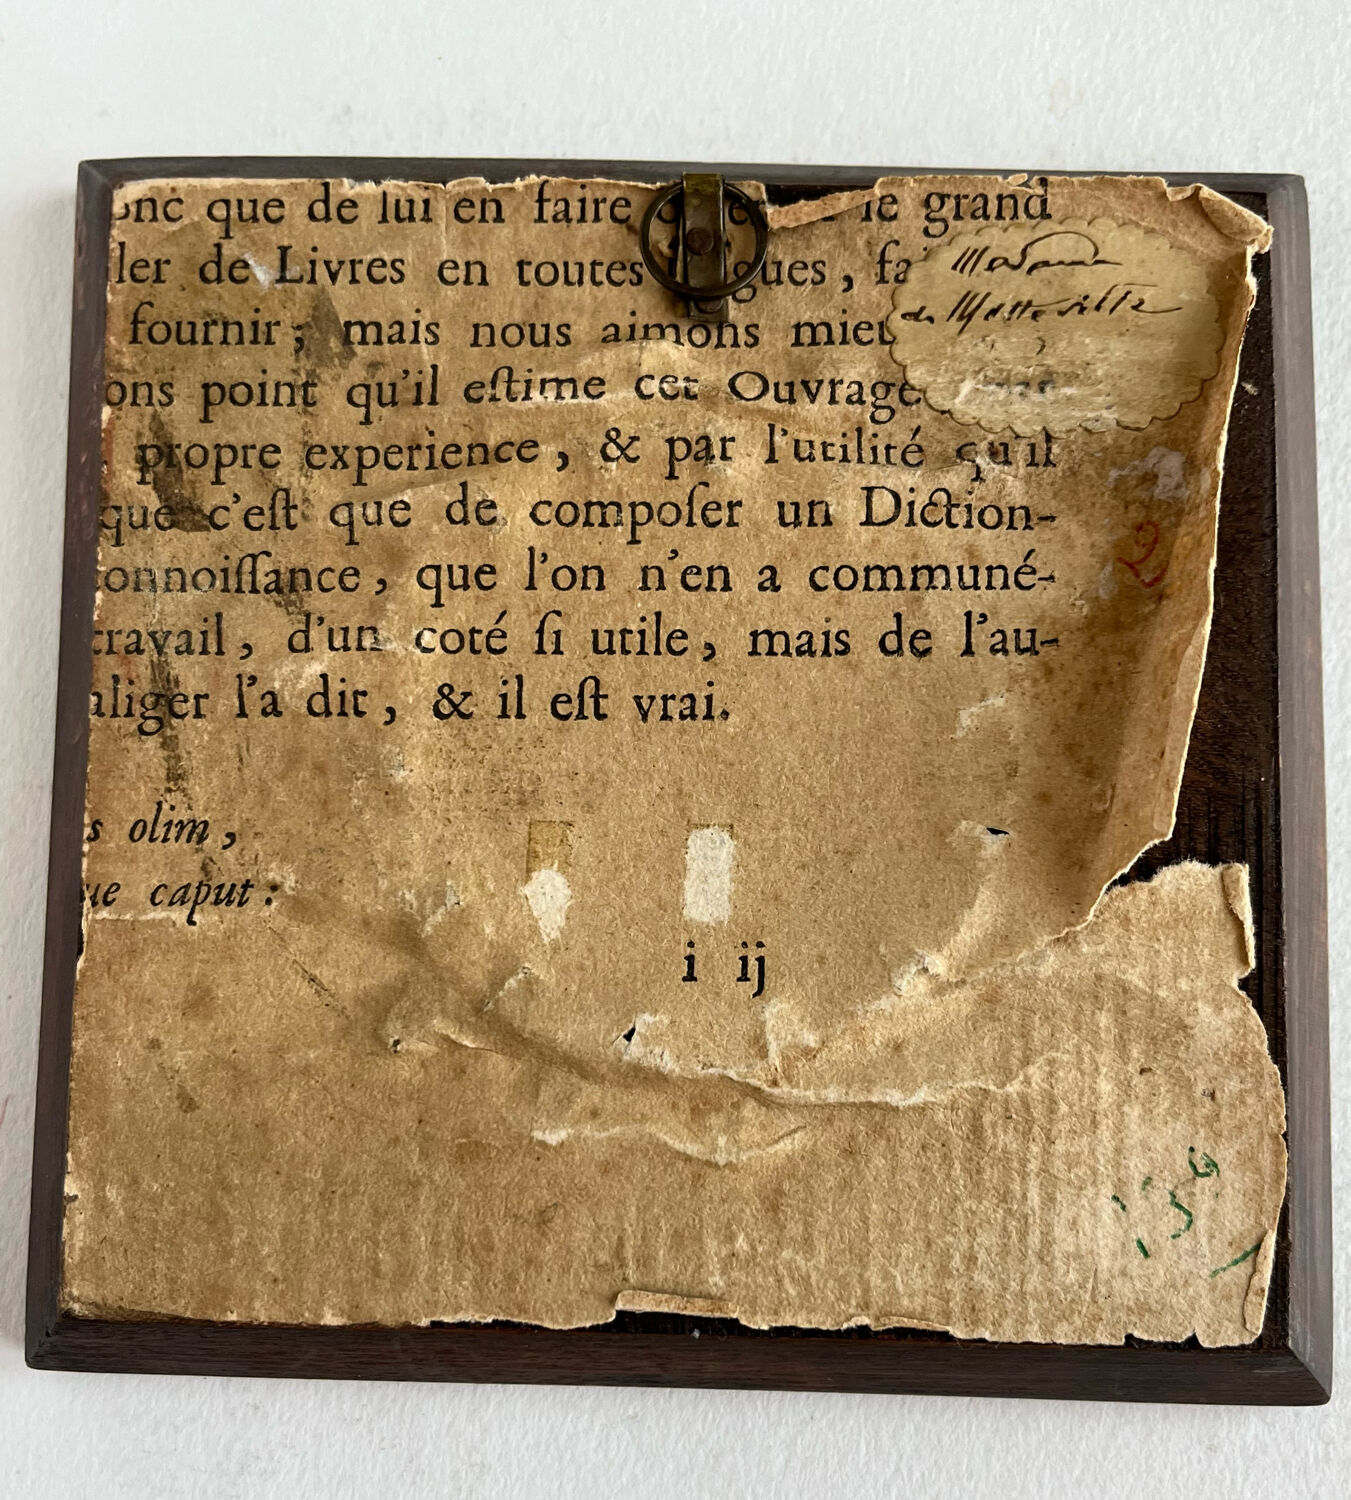 onc que de lui en faire le grand
ler de Livres en toutes gues, fa
fournir; mais nous aimons mieu
ons point qu'il eſtime cet Ouvrage
propre experience, & par l'utilité qu'il
que c'eſt que de compoſer un Diction-
onnoiſſance, que l'on n'en a communé-
travail, d'un coté ſi utile, mais de l'au-
aliger l'a dit, & il eſt vrai.
s olim,
ue caput:
i ij
Madame
de
2